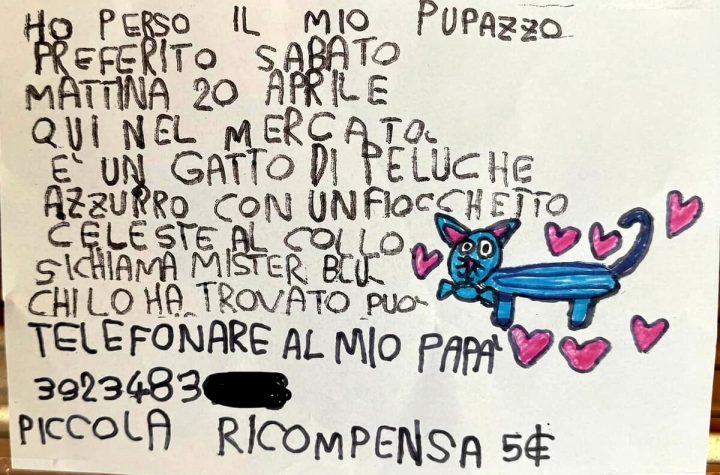 HO PERSO IL MIO PUPAZZO
PREFERITO SABATO
MATTINA 20 APRILE
QUI NEL MERCATO.
E' UN GATTO DI PELUCHE
AZZURRO CON UN FIOCCHETTO
CELESTE AL COLLO.
SI CHIAMA MISTER BLU.
CHI LO HA TROVATO PUO'
TELEFONARE AL MIO PAPA'
3923483
PICCOLA RICOMPENSA 5€